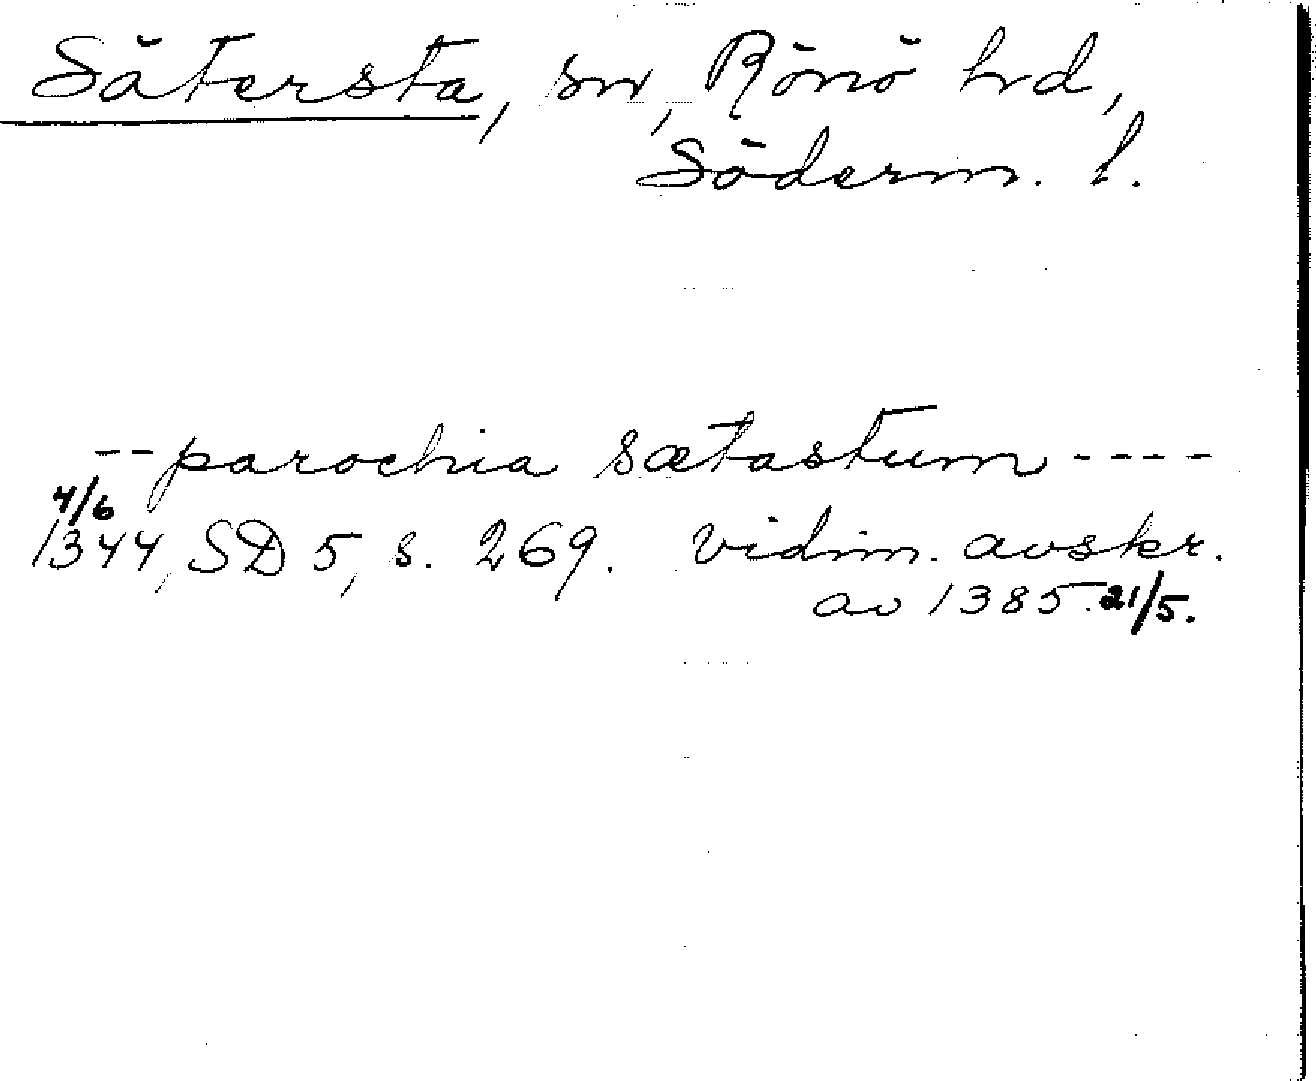 Sätersta, sn, Rönö hd,
Söderm. l.
-- parochia sætastum ----
4/6
1344, SD 5, s. 269. vidim. avskr.
av 1385. 21/5.